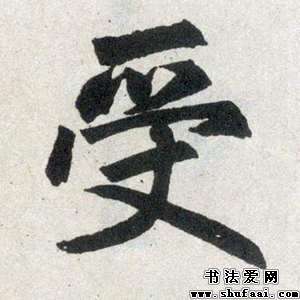 受
书法爱网
www.shufaai.com